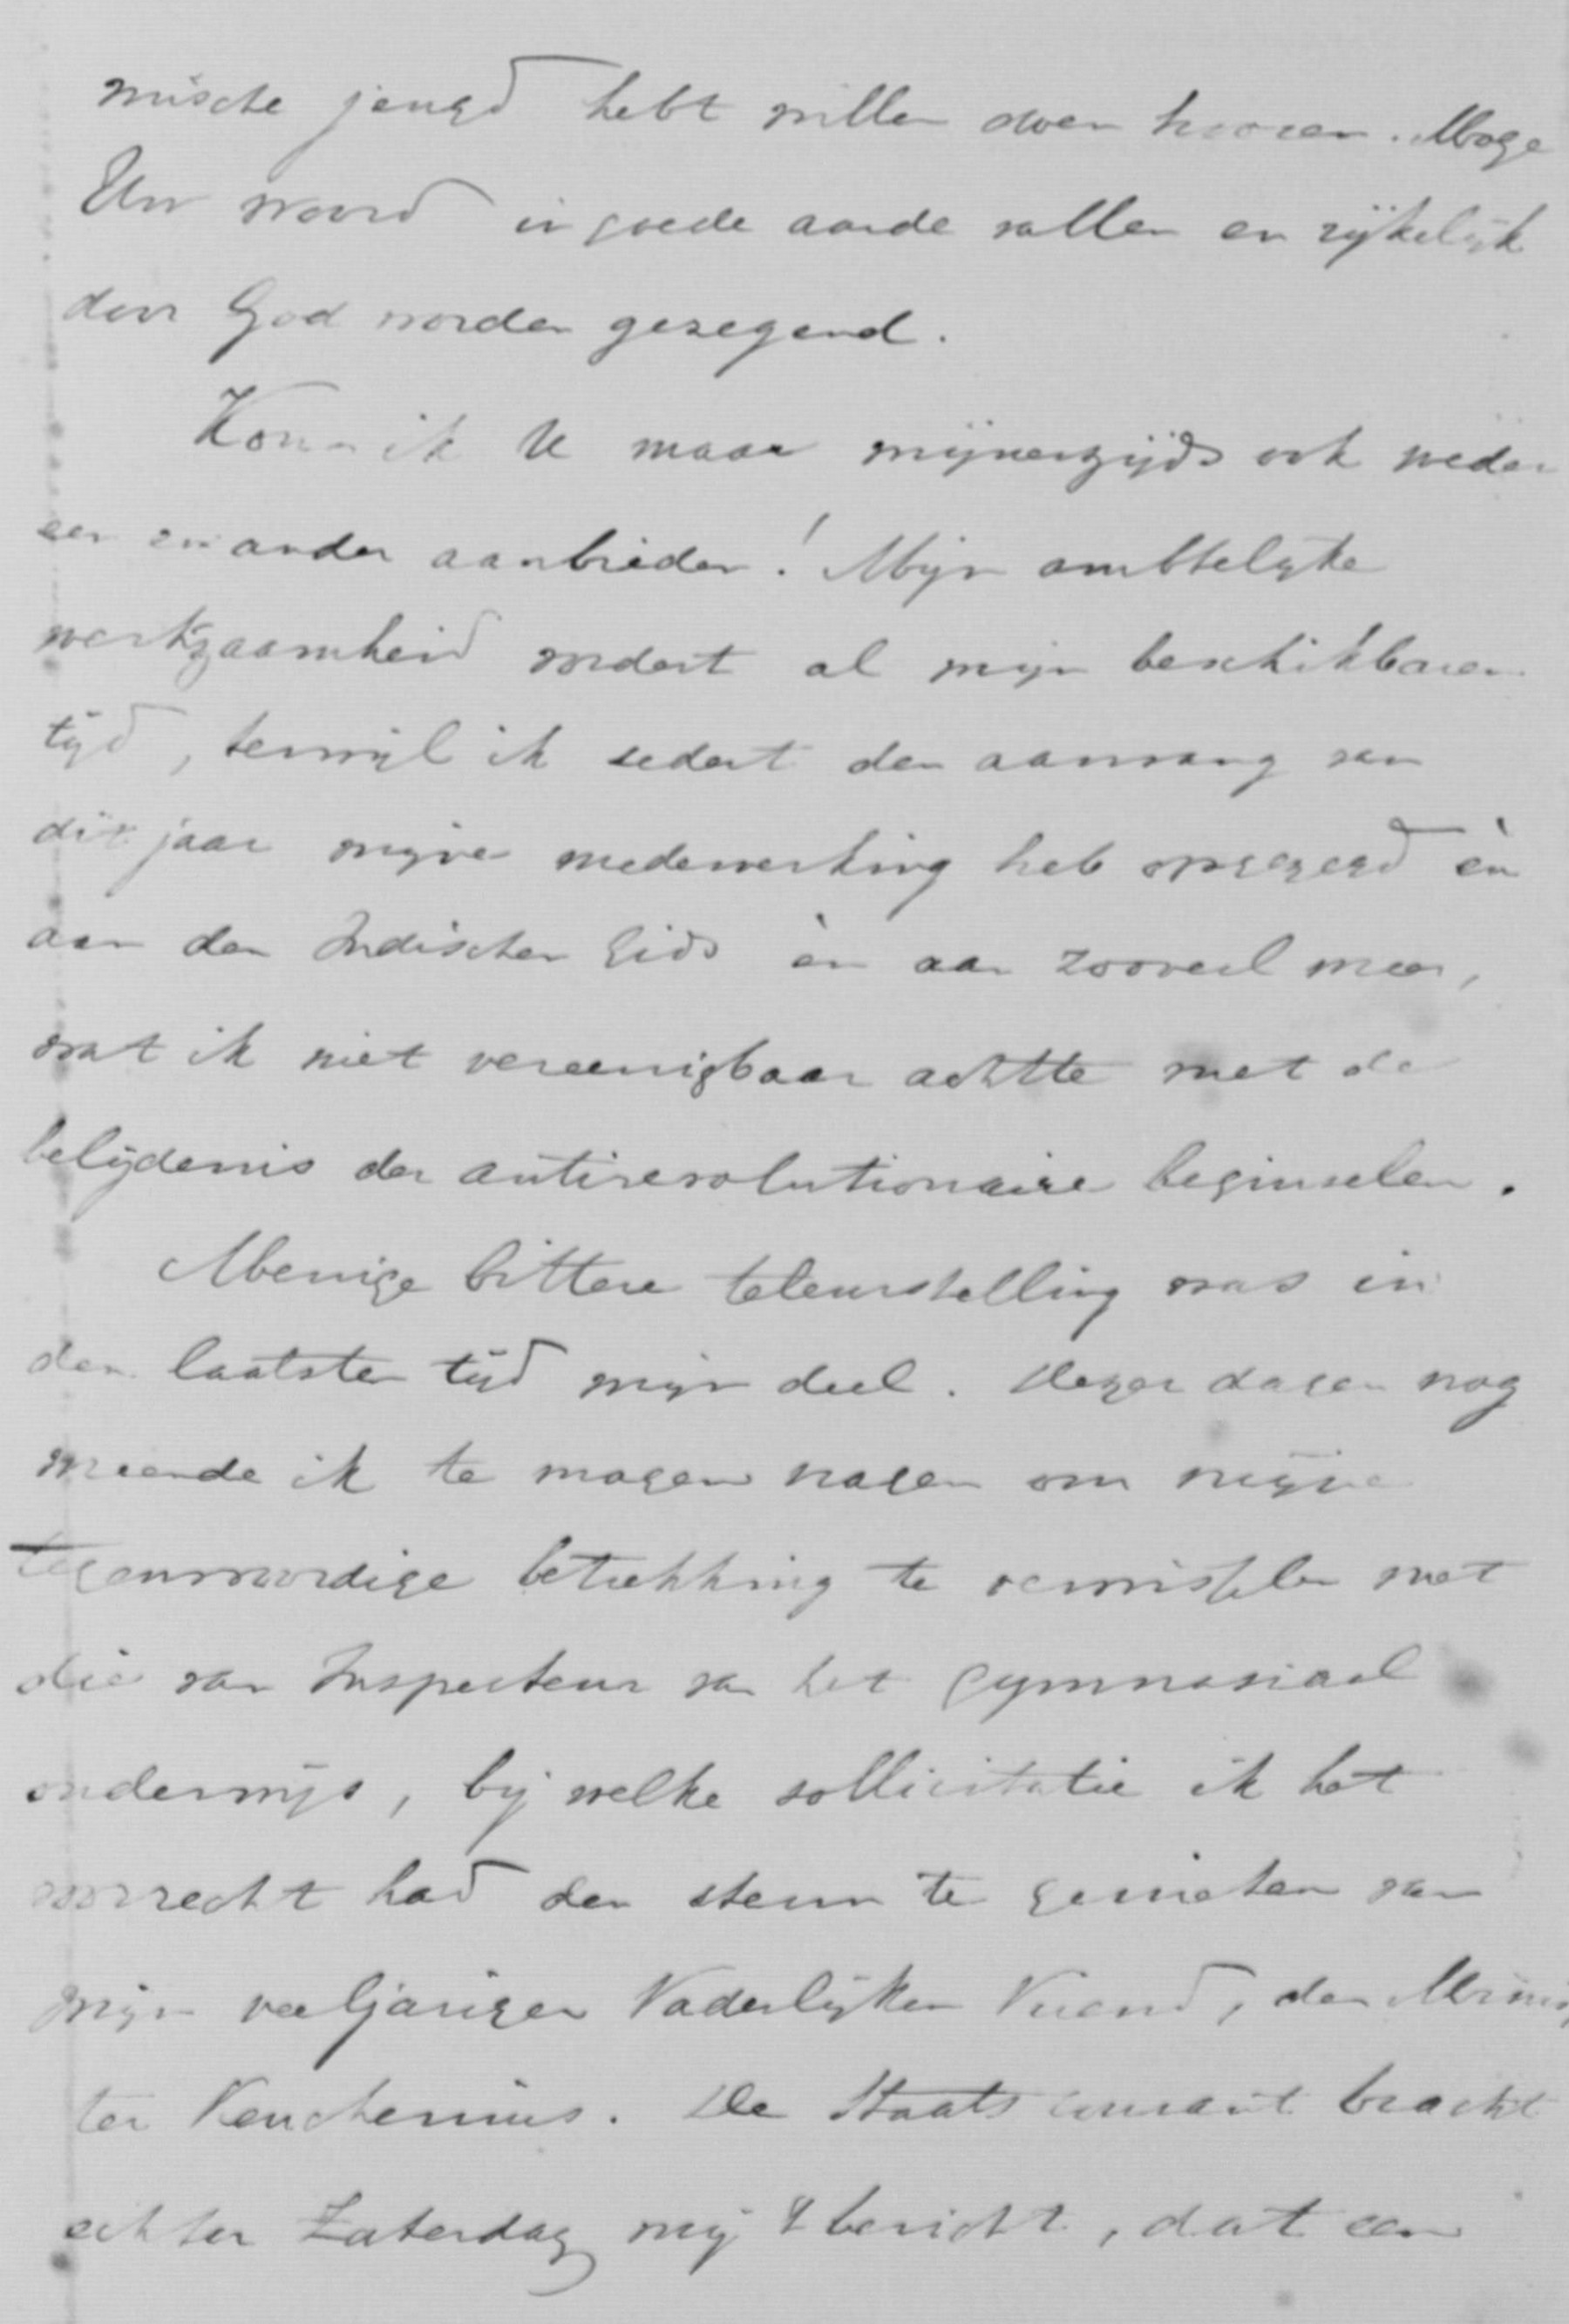 mische jeugd hebt willen doen hooren. Moge
Uw woord in goede aarde vallen en rijkelijk
door God worden gezegend.
Kon ik U maar mijnerzijds ook weder
een en ander aanbieden! Mijn ambtelijke
werkzaamheid vordert al mijn beschikbaren
tijd, terwijl ik sedert den aanvang van
dit jaar mijne medewerking heb opgezegd èn
aan den Indischen Gids èn aan zooveel meer,
wat ik niet vereenigbaar achtte met de
belijdenis der antirevolutionaire beginselen.
Menige bittere teleurstelling was in
den laatsten tijd mijn deel. Dezer dagen nog
meende ik te mogen vragen om mijne
tegenwoordige betrekking te verwisselen met
die van Inspecteur van het gymnasiaal
onderwijs, bij welke sollicitatie ik het
voorrecht had den steun te genieten van
mijn veeljarigen Vaderlijken Vriend, den Minis
ter Keuchenius. De Staatscourant bracht
echter Zaterdag mij 't bericht, dat een